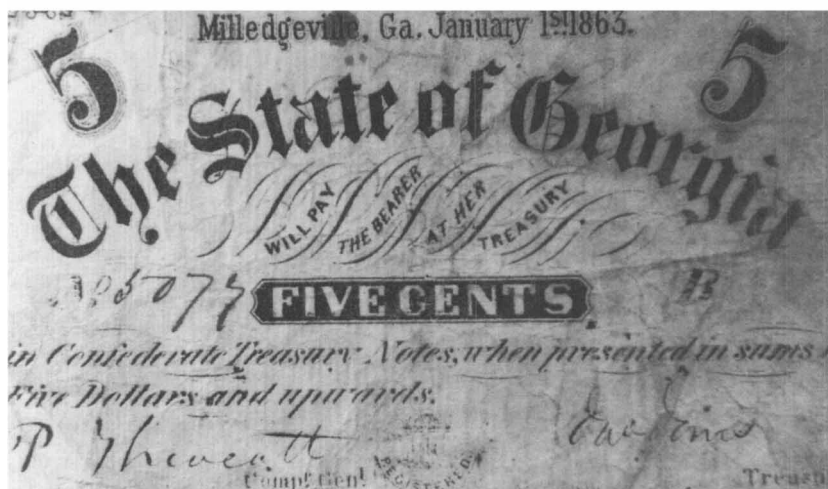 Milledgeville, Ga. January 1st 1863.
5 5
The State of Georgia
WILL PAY THE BEARER AT HER TREASURY
No 5077 B
FIVE CENTS
in Confederate Treasury Notes, when presented in sums
Five Dollars and upwards.
Compt Genl REGISTERED